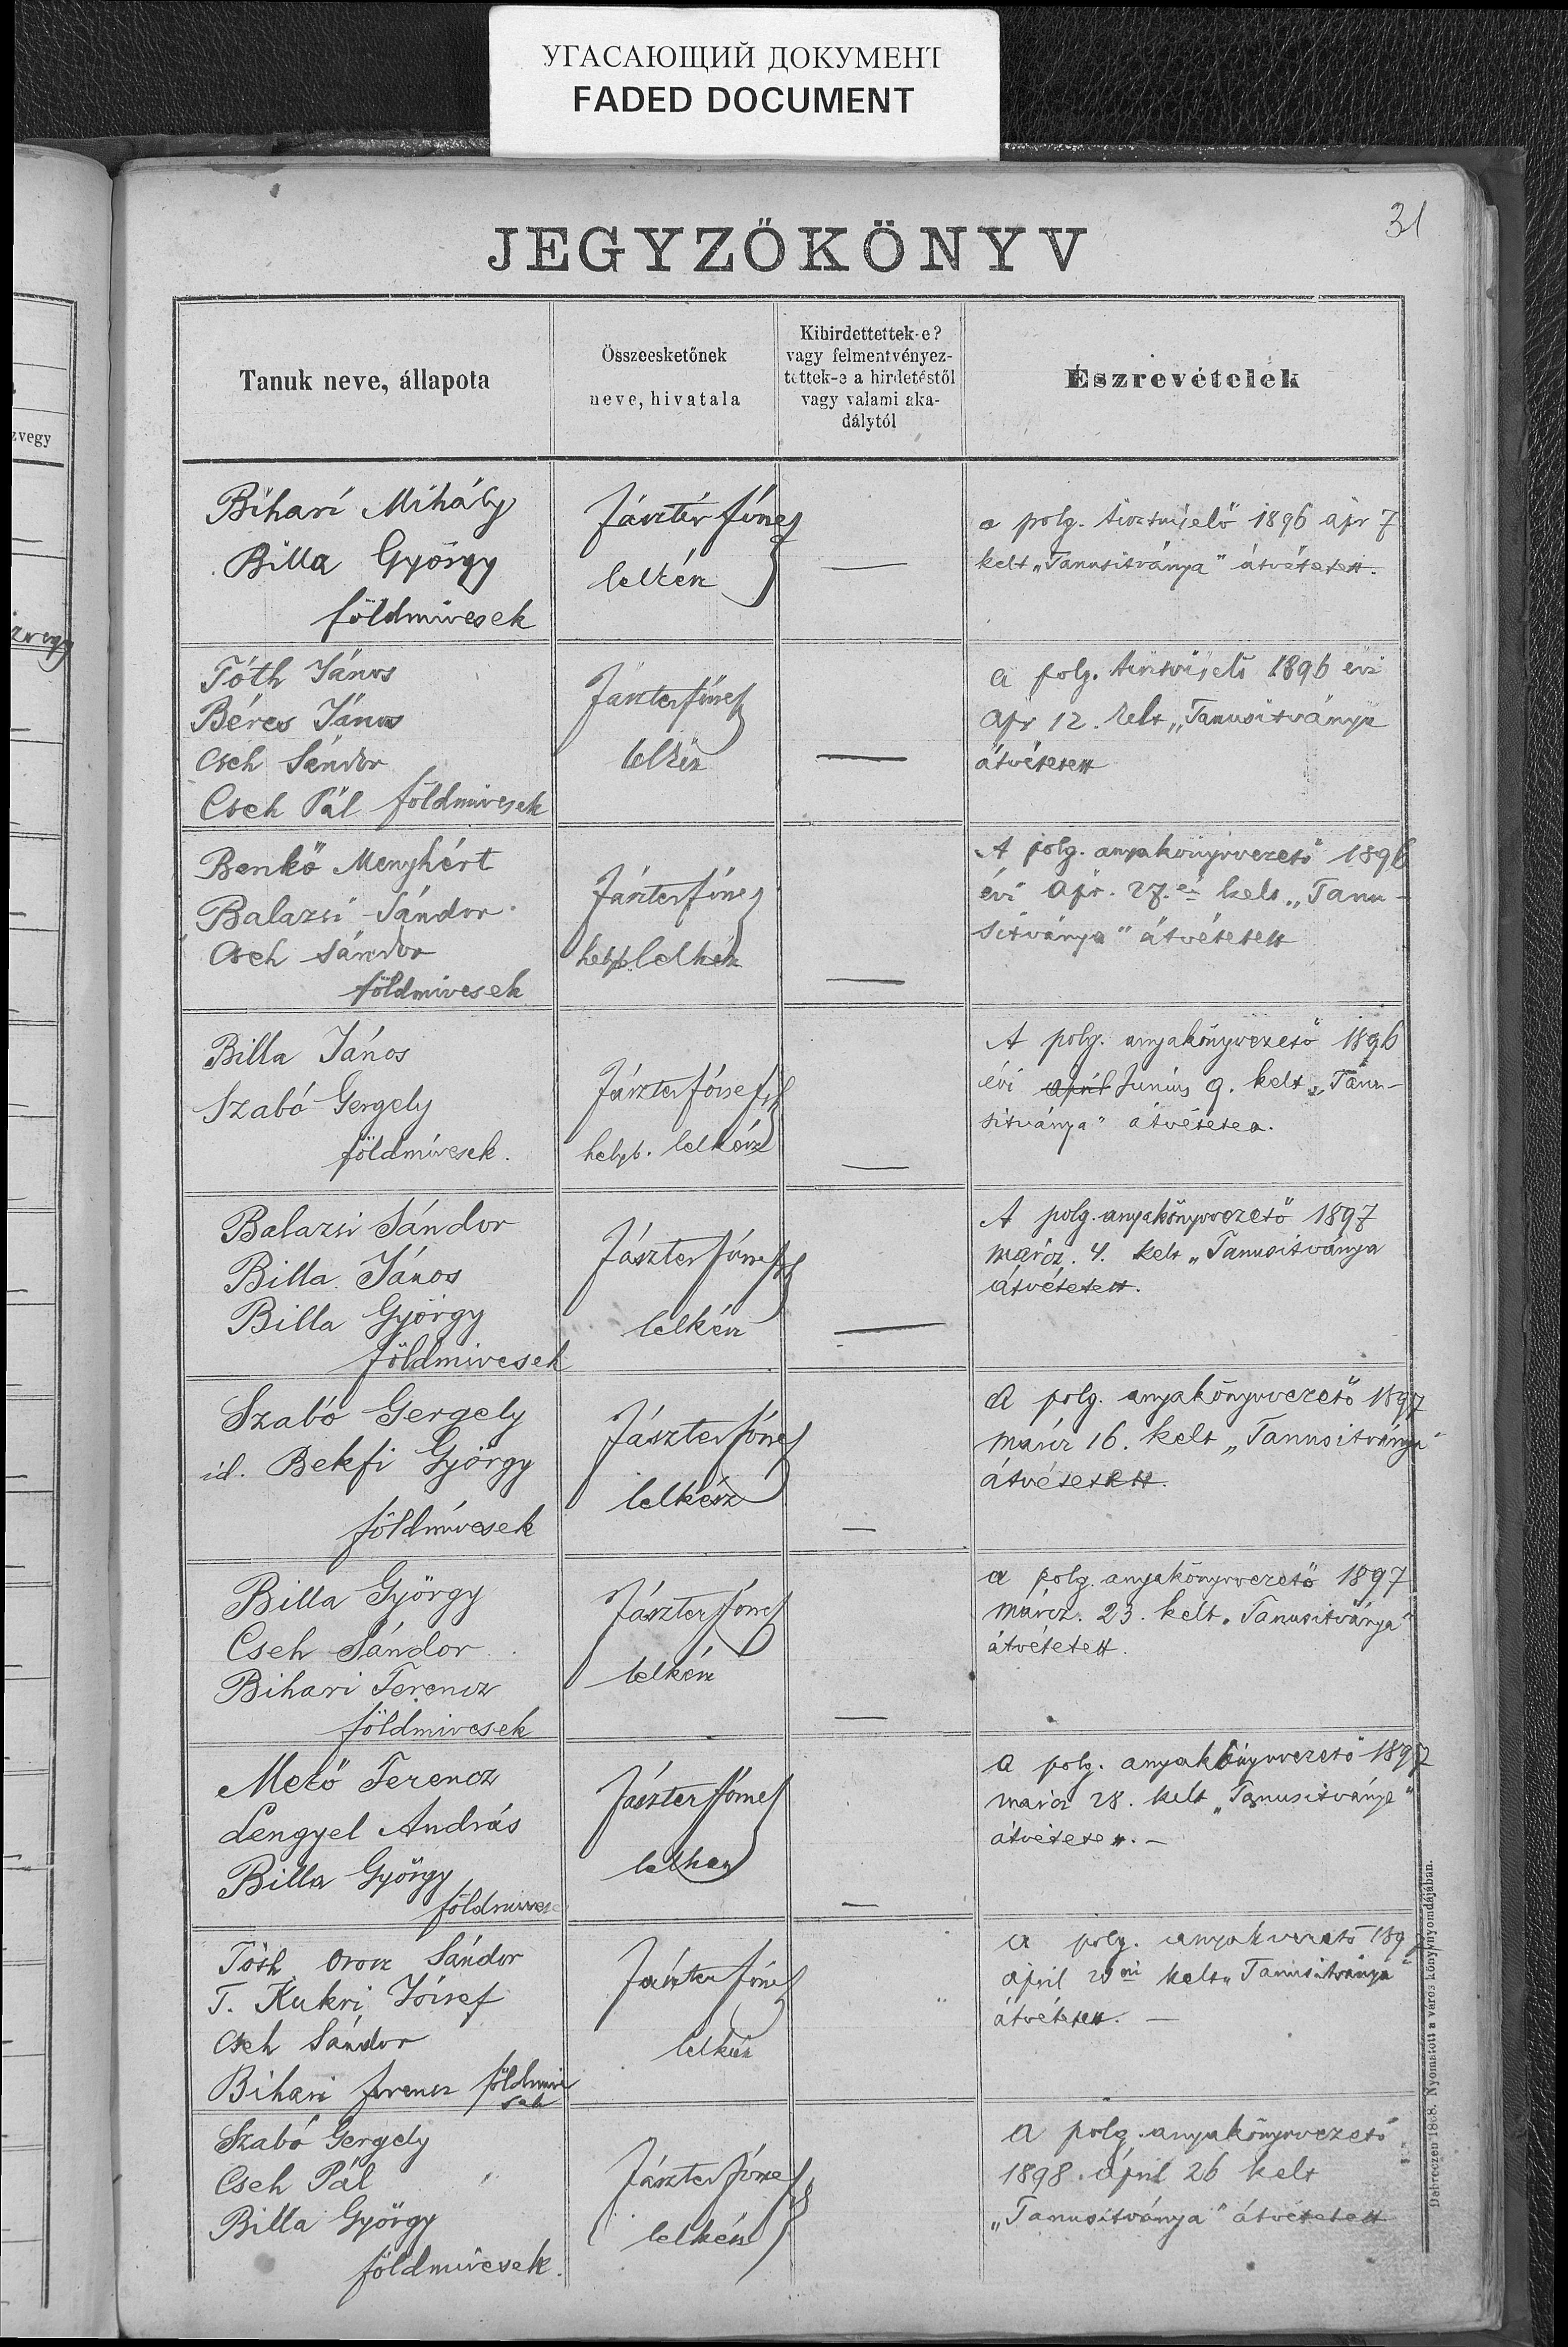 УГАСАЮЩИЙ ДОКУМЕНТ
FADED DOCUMENT
31
JEGYZŐKÖNYV
zvegy
Tanuk neve, állapota
Összeesketőnek
neve, hivatala
Kihirdettettek-e?
vagy felmentvényez-
tettek-e a hirdetéstől
vagy valami aka-
dálytól
Észrevételek
Bihari Mihály
Billa György
földmivesek
Jászter József
lelkész
a polg. tisztviselő 1896 ápr 7
kelt „Tanusitványa" átvétetett.
Tóth János
Béres János
Cseh Sándor
Cseh Pál földmivesek
Jászter József
lelkész
a polg. tisztviselő 1896 évi
Apr 12. kelt „Tanusitványa
átvétetett
Benkő Menyhért
Balazsi Sándor
Cseh Sándor
földmivesek
Jászter József
helyb. lelkész
A polg. anyakönyvvezető 1896
évi Apr. 27. kelt „Tanu-
sitványa" átvétetett
Billa János
Szabó Gergely
földmívesek.
Jászter József
helyb. lelkész
A polg. anyakönyvvezető 1896
évi april Junius 9. kelt „Tanu-
sitványa" átvétetett.
Balazsi Sándor
Billa János
Billa György
földmivesek
Jászter József
lelkész
A polg. anyakönyvvezető 1897
márcz. 4. kelt „Tanusitványa
átvétetett.
Szabó Gergely
id. Bekfi György
földmívesek
Jászter József
lelkész
A polg. anyakönyvvezető 1897
márcz 16. kelt „Tanusitványa"
átvétetett.
Billa György
Cseh Sándor
Bihari Ferencz
földmivesek
Jászter József
lelkész
a polg. anyakönyvvezető 1897
márcz. 23. kelt „Tanusitványa"
átvétetett.
Mető Ferencz
Lengyel András
Billa György
földmivese
Jászter József
lelkész
a polg. anyakönyvvezető 1897
márcz 28. kelt „Tanusitványa"
átvétetett. –
Tóth Orosz Sándor
T. Kukri József
Cseh Sándor
Bihari Ferencz földmive
sek
Jászter József
lelkész
a polg. anyakvezető 189
április kelt „Tanusitványa"
átvétetett. –
Szabó Gergely
Cseh Pál
Billa György
földmivesek.
Jászter József
lelkész
A polg. anyakönyvvezető
1898. ápril 26 kelt
„Tanusitványa" átvétetett
Nyomatott a város könyvnyomdájában.